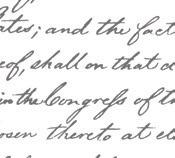 ates; and the fact
eof, shall on that d
in the Congress of th
osen thereto at el